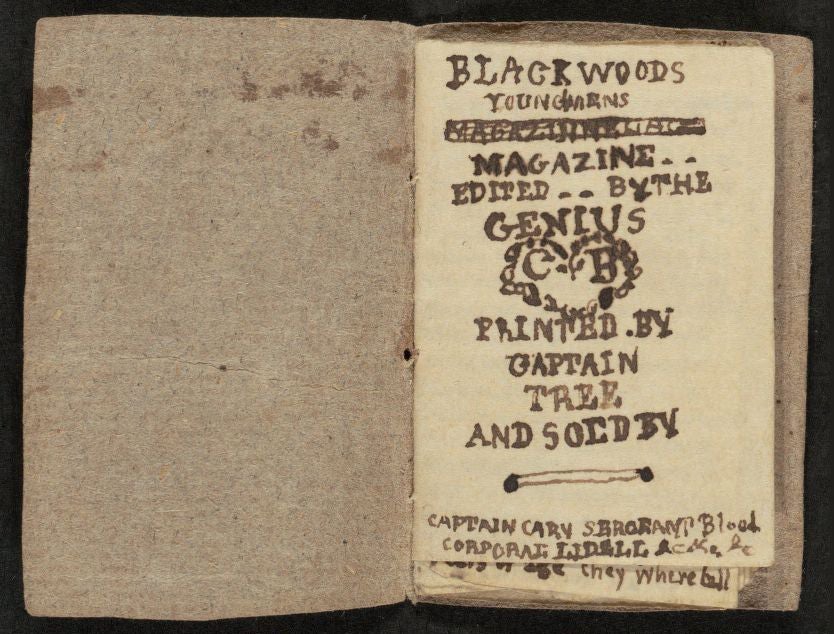 BLACKWOODS
YOUNGMENS
MAGAZINE--
EDITED -- BY THE
GENIUS
C B
PRINTED.BY
CAPTAIN
TREE
AND SOLD BY
CAPTAIN CARY SERGEANT Blood
CORPORAL LIDELL &c &c &c
of age they where tall